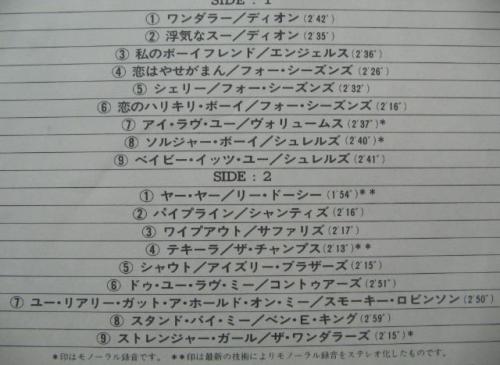 SIDE : 1
① ワンダラー／ディオン(2´42˝)
② 浮気なスー／ディオン(2´35˝)
③ 私のボーイフレンド／エンジェルス(2´36˝)
④ 恋はやせがまん／フォー・シーズンズ(2´26˝)
⑤ シェリー／フォー・シーズンズ(2´32˝)
⑥ 恋のハリキリ・ボーイ／フォー・シーズンズ(2´16˝)
⑦ アイ・ラヴ・ユー／ヴォリュームス(2´37˝)*
⑧ ソルジャー・ボーイ／シュレルズ(2´40˝)*
⑨ ベイビー・イッツ・ユー／シュレルズ(2´41˝)
SIDE : 2
① ヤー・ヤー／リー・ドーシー(1´54˝)**
② パイプライン／シャンティズ(2´16˝)
③ ワイプアウト／サファリズ(2´17˝)
④ テキーラ／ザ・チャンプス(2´13˝)**
⑤ シャウト／アイズリー・ブラザーズ(2´15˝)
⑥ ドゥ・ユー・ラヴ・ミー／コントゥアーズ(2´51˝)
⑦ ユー・リアリー・ガット・ア・ホールド・オン・ミー／スモーキー・ロビンソン(2´50˝)
⑧ スタンド・バイ・ミー／ベン・E・キング(2´59˝)
⑨ ストレンジャー・ガール／ザ・ワンダラーズ(2´15˝)*
*印はモノーラル録音です。 **印は最新の技術によりモノーラル録音をステレオ化したものです。